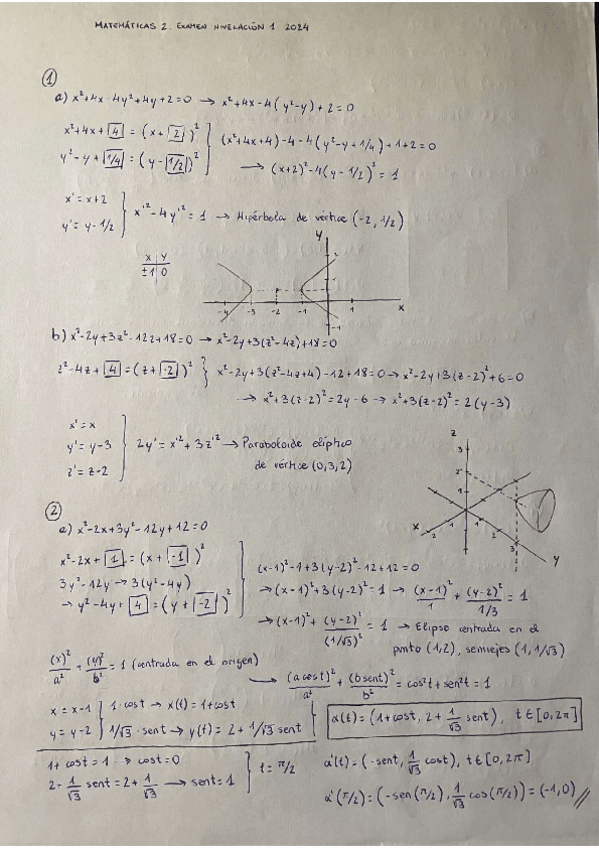 MATEMÁTICAS 2. EXAMEN NIVELACIÓN 1 2024
①
a) x²+4x-4y²+4y+2=0 → x²+4x-4(y²-y)+2=0
x²+4x+[4] = (x+[2])²
y²-y+[1/4] = (y-[1/2])²
(x²+4x+4)-4-4(y²-y+1/4)+1+2=0
→ (x+2)²-4(y-1/2)²=1
x'=x+2
y'=y-1/2
x'²-4y'²=1 → Hipérbola de vértice (-2, 1/2)
x y
±1 0
y
-4 -3 -2 -1 1 x
-1
b) x²-2y+3z²-12z+18=0 → x²-2y+3(z²-4z)+18=0
z²-4z+[4]=(z+[-2])² } x²-2y+3(z²-4z+4)-12+18=0 → x²-2y+3(z-2)²+6=0
→ x²+3(z-2)²=2y-6 → x²+3(z-2)²=2(y-3)
x'=x
y'=y-3
z'=z-2
2y'=x'²+3z'² → Paraboloide elíptico
de vértice (0,3,2)
z
3
2
1
x 2 1 1 3 y
②
a) x²-2x+3y²-12y+12=0
x²-2x+[1]=(x+[-1])²
3y²-12y → 3(y²-4y)
→ y²-4y+[4]=(y+[-2])²
(x-1)²-1+3(y-2)²-12+12=0
→ (x-1)²+3(y-2)²=1 → (x-1)²/1 + (y-2)²/1/3 = 1
→ (x-1)²+(y-2)²/(1/√3)² = 1 → Elipse centrada en el
punto (1,2), semiejes (1, 1/√3)
(x)²/a² + (y)²/b² = 1 (centrada en el origen)
→ (a cost)²/a² + (b sent)²/b² = cos²t+sen²t=1
x=x-1 } 1·cost → x(t)=1+cost
y=y-2 } 1/√3·sent → y(t)=2+1/√3 sent
α(t)=(1+cost, 2+1/√3 sent), t∈[0,2π]
1+cost=1 → cost=0
2+1/√3 sent=2+1/√3 → sent=1
t=π/2
α'(t)=(-sent, 1/√3 cost), t∈[0,2π]
α'(π/2)=(-sen(π/2), 1/√3 cos(π/2))=(-1,0)//